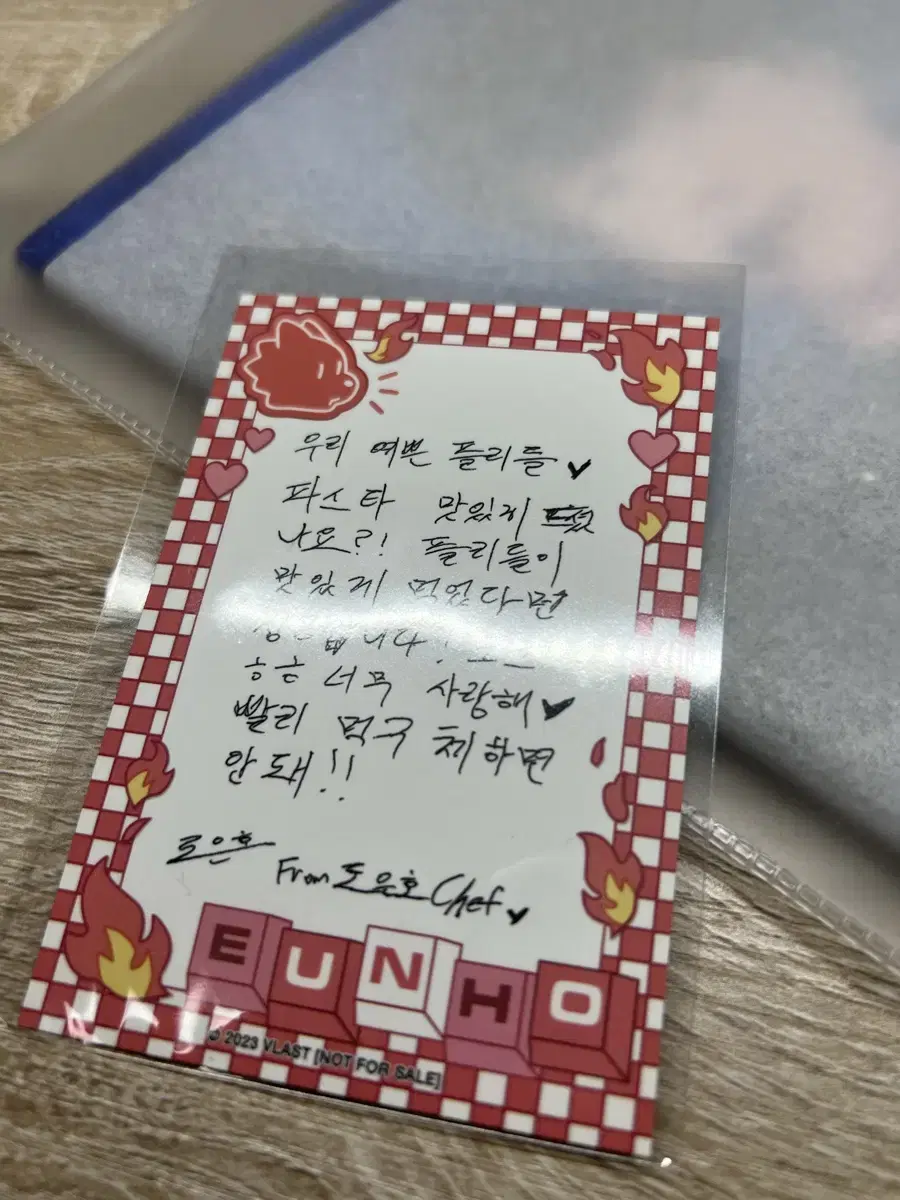 우리 예쁜 플리들♥
파스타 맛있게 드셨
나요?! 플리들이
맛있게 먹었다면
너무 사랑해♥
빨리 먹구 체하면
안돼!!
도은호
From 도은호 Chef♥
EUNHO
© 2023 VLAST [NOT FOR SALE]